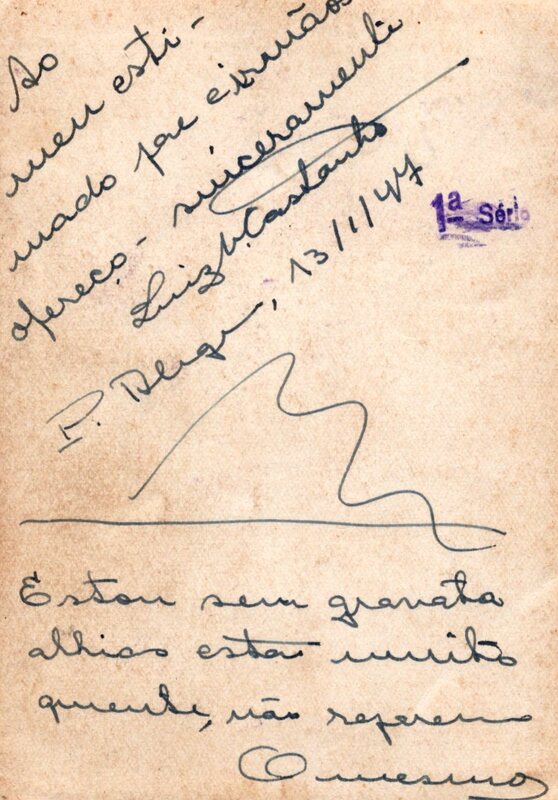 Ao
meu esti-
mado pae e irmãos
ofereço - sinceramente
Luiz V. Castanho
P. Alegre, 13/1/47
1ª Série
Estou sem gravata
alhias está muito
quente, não reparem
O mesmo